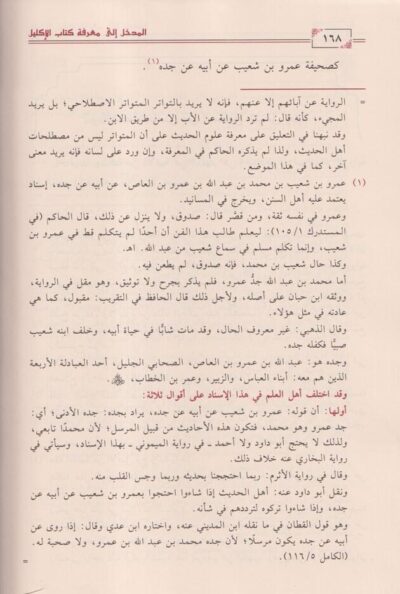 ١٦٨
المدخل إلى معرفة كتاب الإكليل
كصحيفة عمرو بن شعيب عن أبيه عن جده(١).
= الرواية عن آبائهم إلا عنهم، فإنه لا يريد بالتواتر المتواتر الاصطلاحي؛ بل يريد
المجيء، كأنه قال: لم ترد الرواية عن الأب إلا من طريق الابن.
وقد نبهنا في التعليق على معرفة علوم الحديث على أن المتواتر ليس من مصطلحات
أهل الحديث، ولذا لم يذكره الحاكم في المعرفة، وإن ورد على لسانه فإنه يريد معنى
آخر، كما في هذا الموضع.
(١) عمرو بن شعيب بن محمد بن عبد الله بن عمرو بن العاص، عن أبيه عن جده، إسناد
يعتمد عليه أهل السنن، ويخرج في المسانيد.
وعمرو في نفسه ثقة، ومن قصَّر قال: صدوق، ولا ينزل عن ذلك، قال الحاكم (في
المستدرك ١/١٠٥): ليعلم طالب هذا الفن أن أحدًا لم يتكلم قط في عمرو بن
شعيب، وإنما تكلم مسلم في سماع شعيب من عبد الله. اهـ
وكذا حال شعيب بن محمد، فإنه صدوق، لم يطعن فيه.
أما محمد بن عبد الله جدُّ عمرو، فلم يذكر بجرح ولا توثيق، وهو مقل في الرواية،
ووثقه ابن حبان على أصله، ولأجل ذلك قال الحافظ في التقريب: مقبول، كما هي
عادته في مثل هؤلاء.
وقال الذهبي: غير معروف الحال، وقد مات شابًّا في حياة أبيه، وخلف ابنه شعيب
صبيًّا فكفله جده.
وجده هو: عبد الله بن عمرو بن العاص، الصحابي الجليل، أحد العبادلة الأربعة
الذين هم معه: أبناء العباس، والزبير، وعمر بن الخطاب، ﷺ.
وقد اختلف أهل العلم في هذا الإسناد على أقوال ثلاثة:
أولها: أن قوله: عمرو بن شعيب عن أبيه عن جده، يراد بجده: جده الأدنى؛ أي:
جد عمرو وهو محمد، فتكون هذه الأحاديث من قبيل المرسل؛ لأن محمدًا تابعي،
ولذلك لا يحتج أبو داود ولا أحمد ـ في رواية الميموني ـ بهذا الإسناد، وسيأتي في
رواية البخاري عنه خلاف ذلك.
وقال في رواية الأثرم: ربما احتججنا بحديثه وربما وجس القلب منه.
ونقل أبو داود عنه: أهل الحديث إذا شاءوا احتجوا بعمرو بن شعيب عن أبيه عن
جده، وإذا شاءوا تركوه لترددهم في شأنه.
وهو قول القطان في ما نقله ابن المديني عنه، واختاره ابن عدي وقال: إذا روى عن
أبيه عن جده يكون مرسلًا؛ لأن جده محمد بن عبد الله بن عمرو، ولا صحبة له.
(الكامل ٥/١١٦).
=